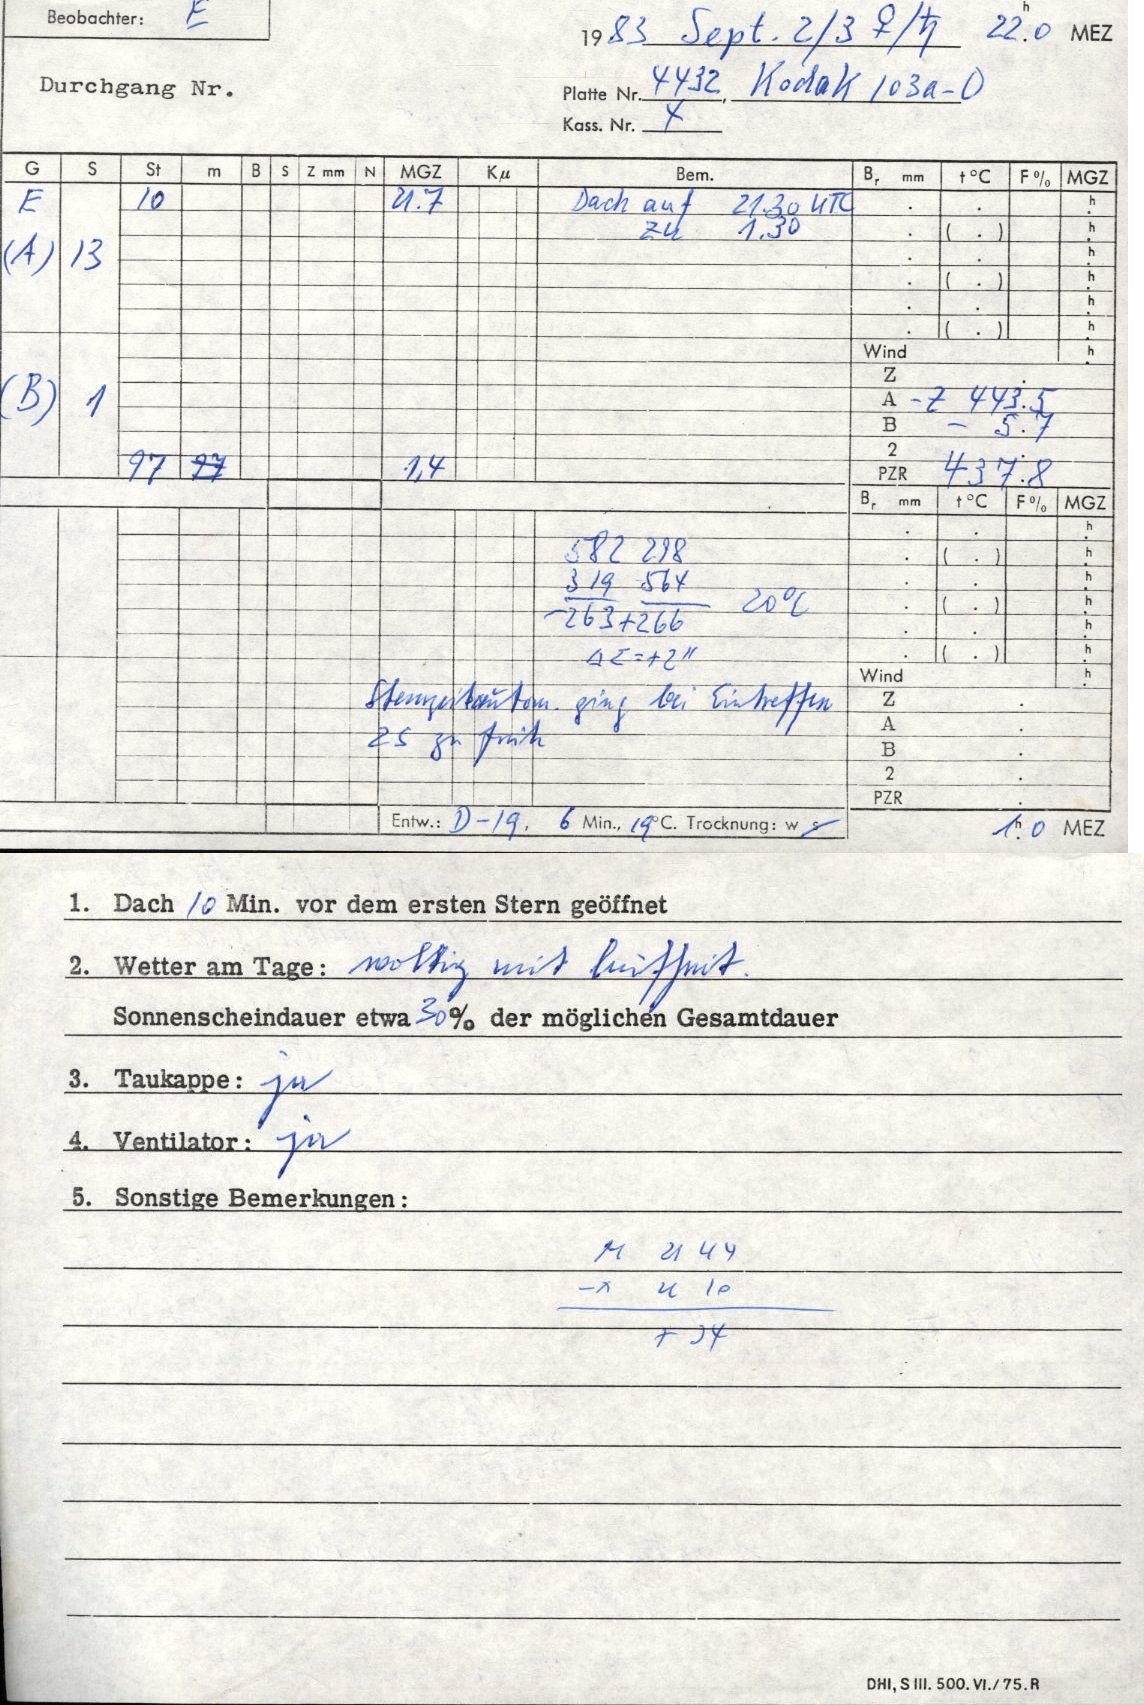 Beobachter: E
1983 Sept. 2/3 ♀/♄ 22.0 h MEZ
Durchgang Nr.
Platte Nr. 4432, Kodak 103a-D
Kass. Nr. 4
G S St m B S Z mm N MGZ Kμ Bem. Br mm t °C F % MGZ
E 10 21.7 Dach auf 21.30 UTC . . h
zu 1.30 . ( . ) h
(A) 13 . . h
. ( . ) h
. . h
. ( . ) h
Wind h
Z .
(B) 1 A -Z 443.5
B - 5.7
2 .
97 97 1,4 PZR 437.8
Br mm t °C F % MGZ
. . h
582 298 . ( . ) h
319 564 . . h
-263 +266 20°C . ( . ) h
. . h
ΔΣ=+2" . ( . ) h
Wind h
Sternzeitautom. ging bei Eintreffen Z .
A .
2S zu früh B .
2 .
PZR .
Entw.: D-19, 6 Min., 19°C. Trocknung: w s
1.0 h MEZ
1. Dach 10 Min. vor dem ersten Stern geöffnet
2. Wetter am Tage: wolkig mit
Sonnenscheindauer etwa 30% der möglichen Gesamtdauer
3. Taukappe: ja
4. Ventilator: ja
5. Sonstige Bemerkungen:
M 21 44
-x 21 10
+ 34
DHI, S III. 500. VI./75. R